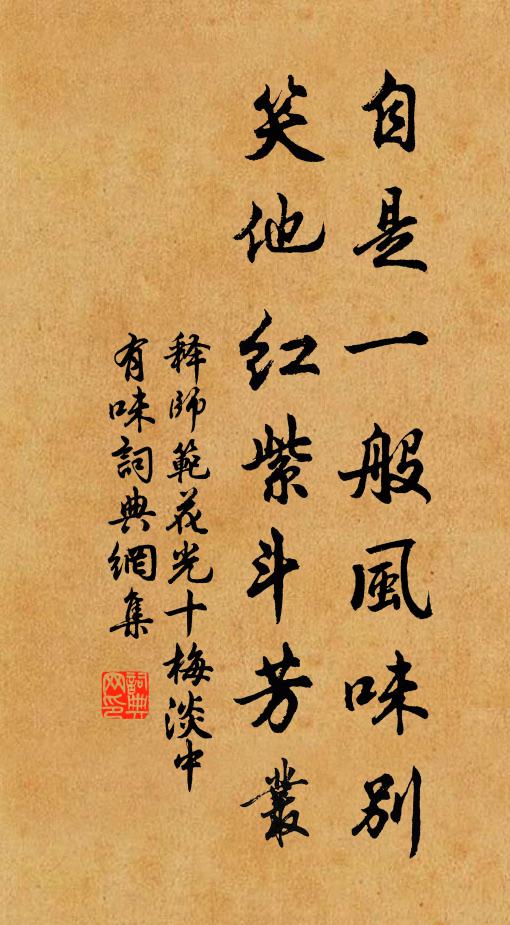 自是一般風味別
笑他紅紫斗芳叢
释師範花光十梅淡中
有味詞典網集
詞典网印